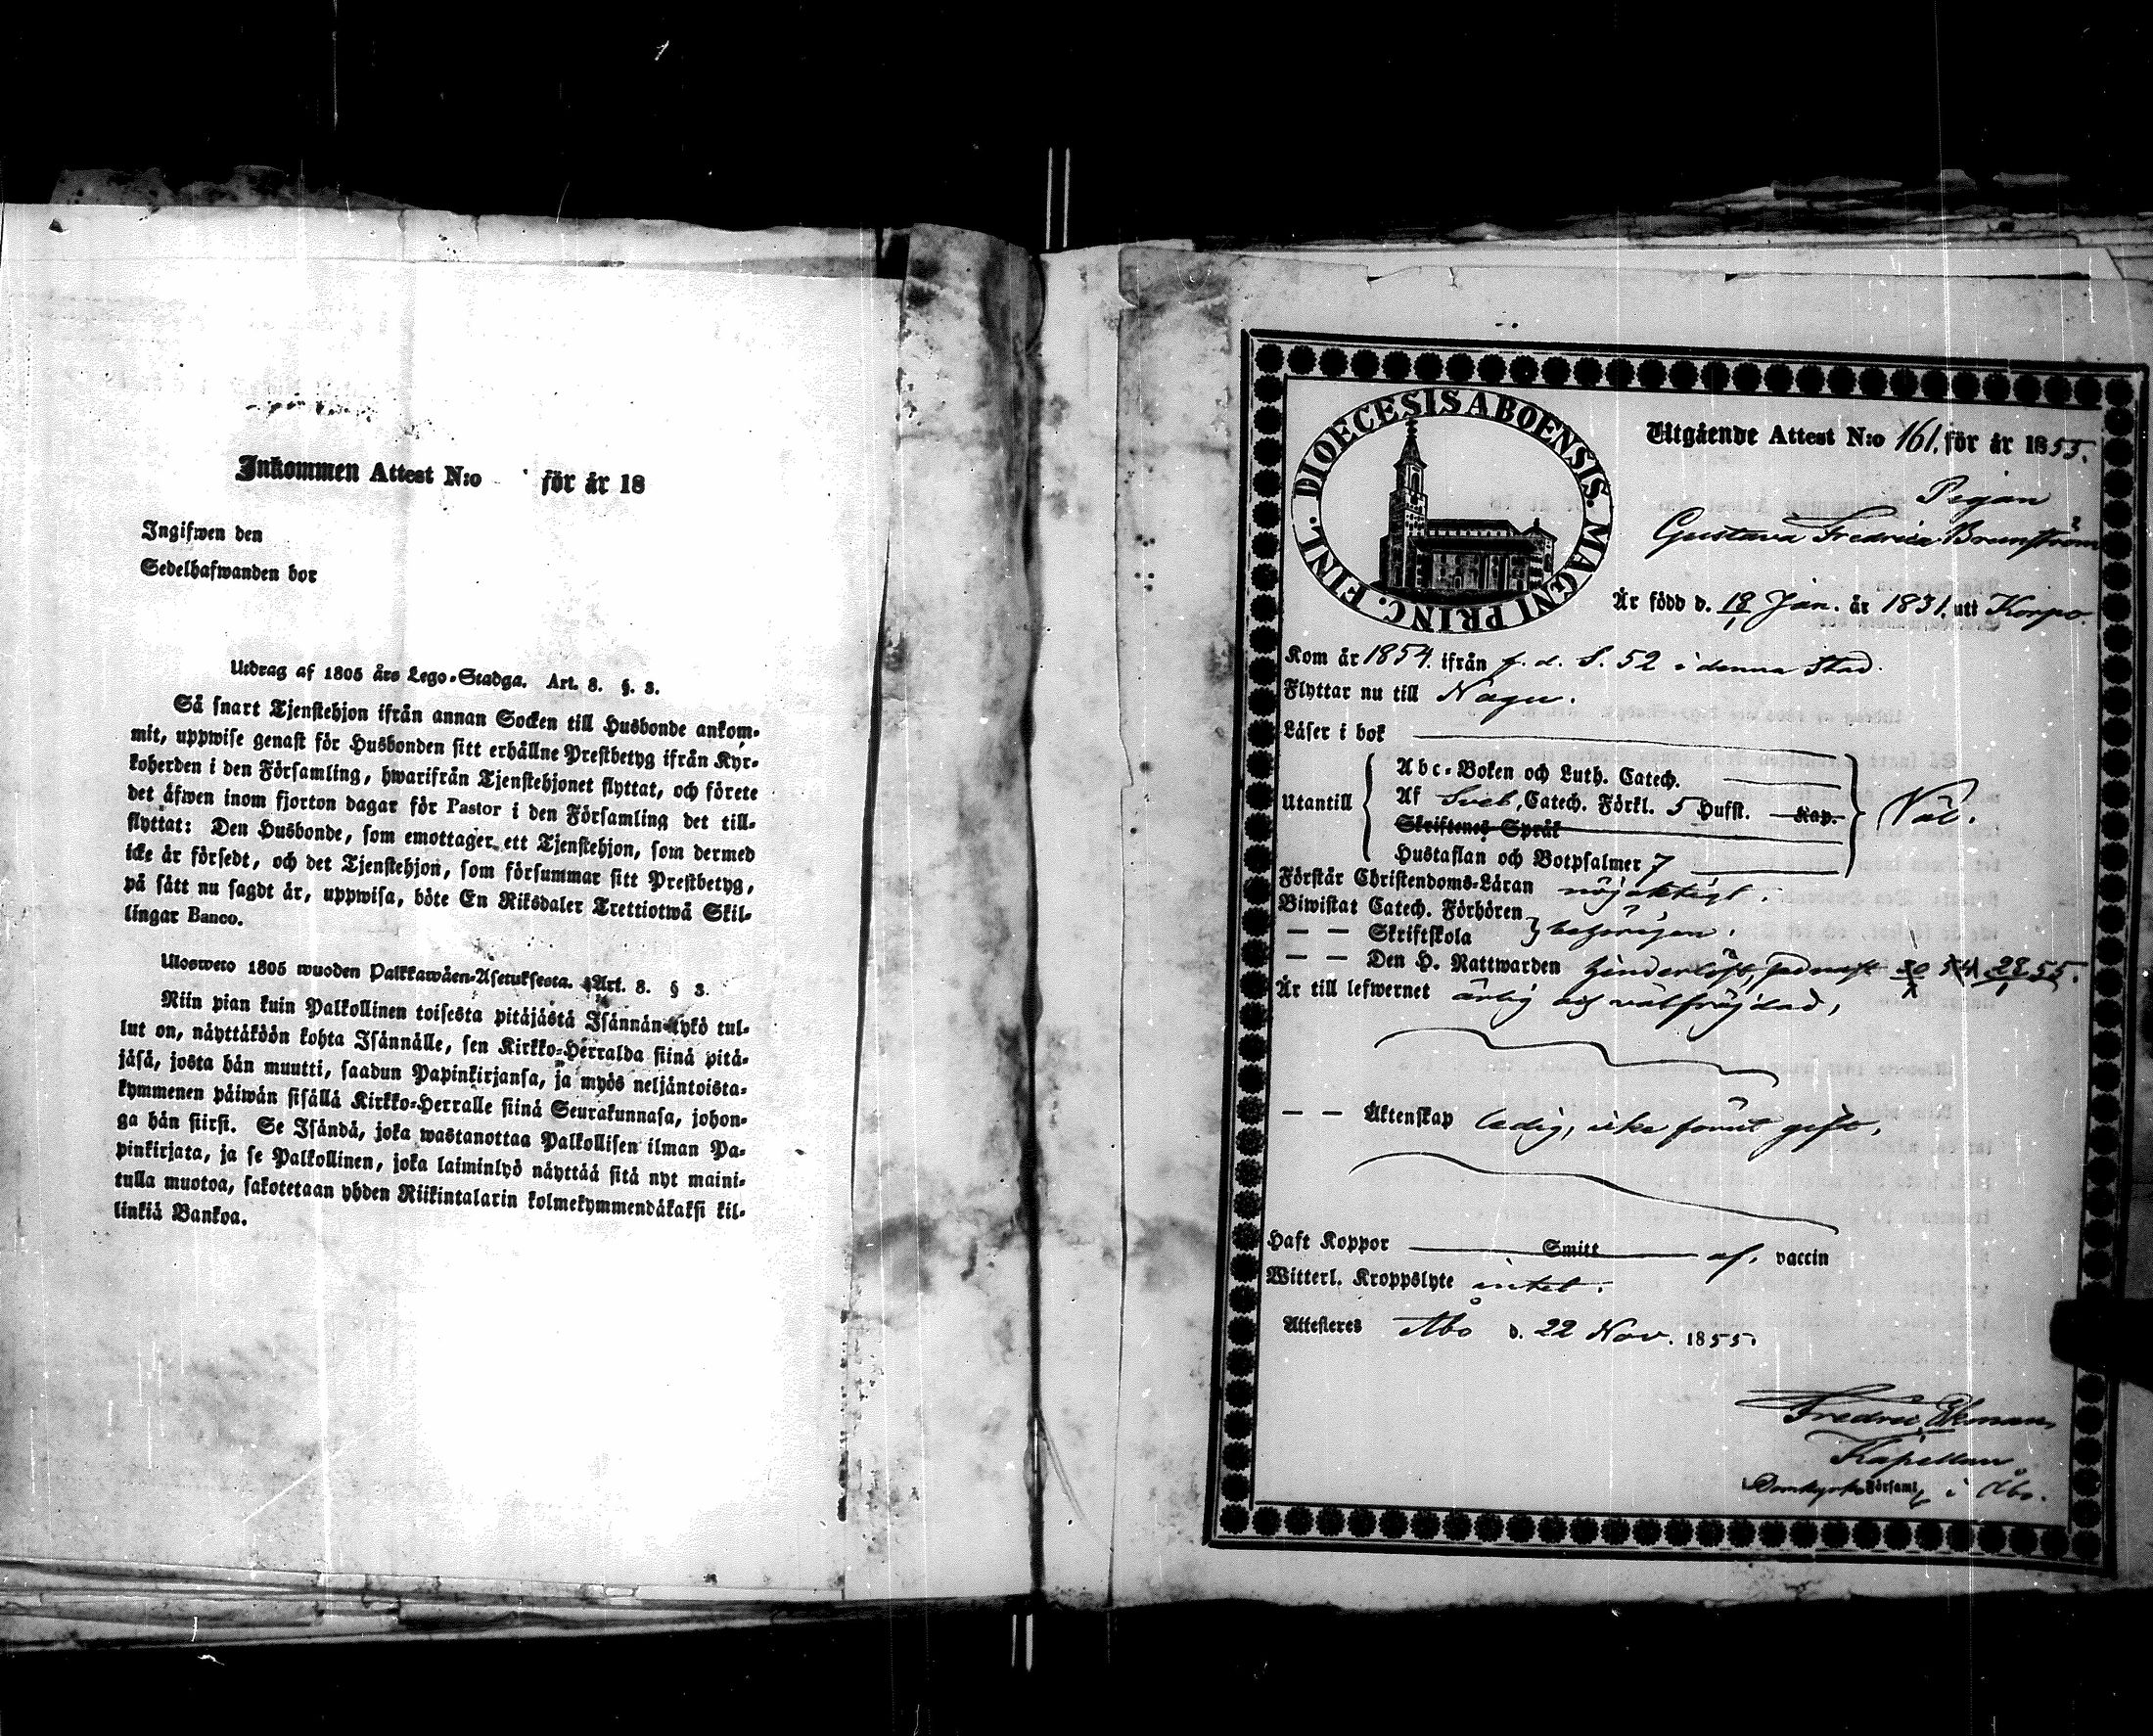 Inkommen Attest N:o för år 18
Ingifwen den
Sedelhafwanden bor
Utdrag af 1805 års Lego-Stadga. Art. 8. §. 3.
Så snart Tjenstehjon ifrån annan Socken till Husbonde ankom-
mit, uppwise genast för Husbonden sitt erhållne Prestbetyg ifrån Kyr-
koherden i den Församling, hwarifrån Tjenstehjonet flyttat, och förete
det äfwen inom fjorton dagar för Pastor i den Församling det till-
flyttat: Den Husbonde, som emottager ett Tjenstehjon, som dermed
icke är försedt, och det Tjenstehjon, som försummar sitt Prestbetyg,
på sätt nu sagdt är, uppwisa, böte En Riksdaler Trettiotwå Skil-
lingar Banco.
Ulosweto 1805 wuoden Palkkawäen-Asetuksesta. Art. 8. § 3.
Niin pian kuin Palkollinen toisesta pitäjästä Isännän tykö tul-
lut on, näyttäköön kohta Isännälle, sen Kirkko-Herralda siinä pitä-
jäsä, josta hän muutti, saadun Papinkirjansa, ja myös neljäntoista-
kymmenen päiwän sisällä Kirkko-Herralle siinä Seurakunnasa, johon-
ga hän siirsi. Se Isändä, joka wastanottaa Palkollisen ilman Pa-
pinkirjata, ja se Palkollinen, joka laiminlyö näyttää sitä nyt maini-
tulla muotoa, sakotetaan yhden Riikintalarin kolmekymmendäkaksi kil-
linkiä Bankoa.
DIOECESIS ABOENSIS. MAGNI PRINC. FINL.
Utgående Attest N:o 161. för år 1855.
Pigan
Gustava Fredrica Brunström
Är född d. 18/1 Jan. år 1831. uti Korpo.
Kom år 1854. ifrån f. d. S. 52 i denna Stad.
Flyttar nu till Nagu.
Läser i bok
Utantill
Abc-Boken och Luth. Catech.
Af Sveb. Catech. Förkl. 5 Hufst. Kap.
Skriftenes Språk
Hustaflan och Botpsalmer 7
Väl.
Förstår Christendoms-Läran nöjaktigt.
Biwistat Catech. Förhören
— — Skriftskola behörigen.
— — Den H. Nattwarden hinderlöst, sednast 28 55.
Är till lefwernet ärlig och välfräjdad,
— — Äktenskap ledig, icke förut gift,
Haft Koppor Smitt af. vaccin
Witterl. Kroppslyte intet.
Attesteres Åbo d. 22 Nov. 1855.
Fredric Ekman,
Kapellan
Domkyrko Församl i Åbo.